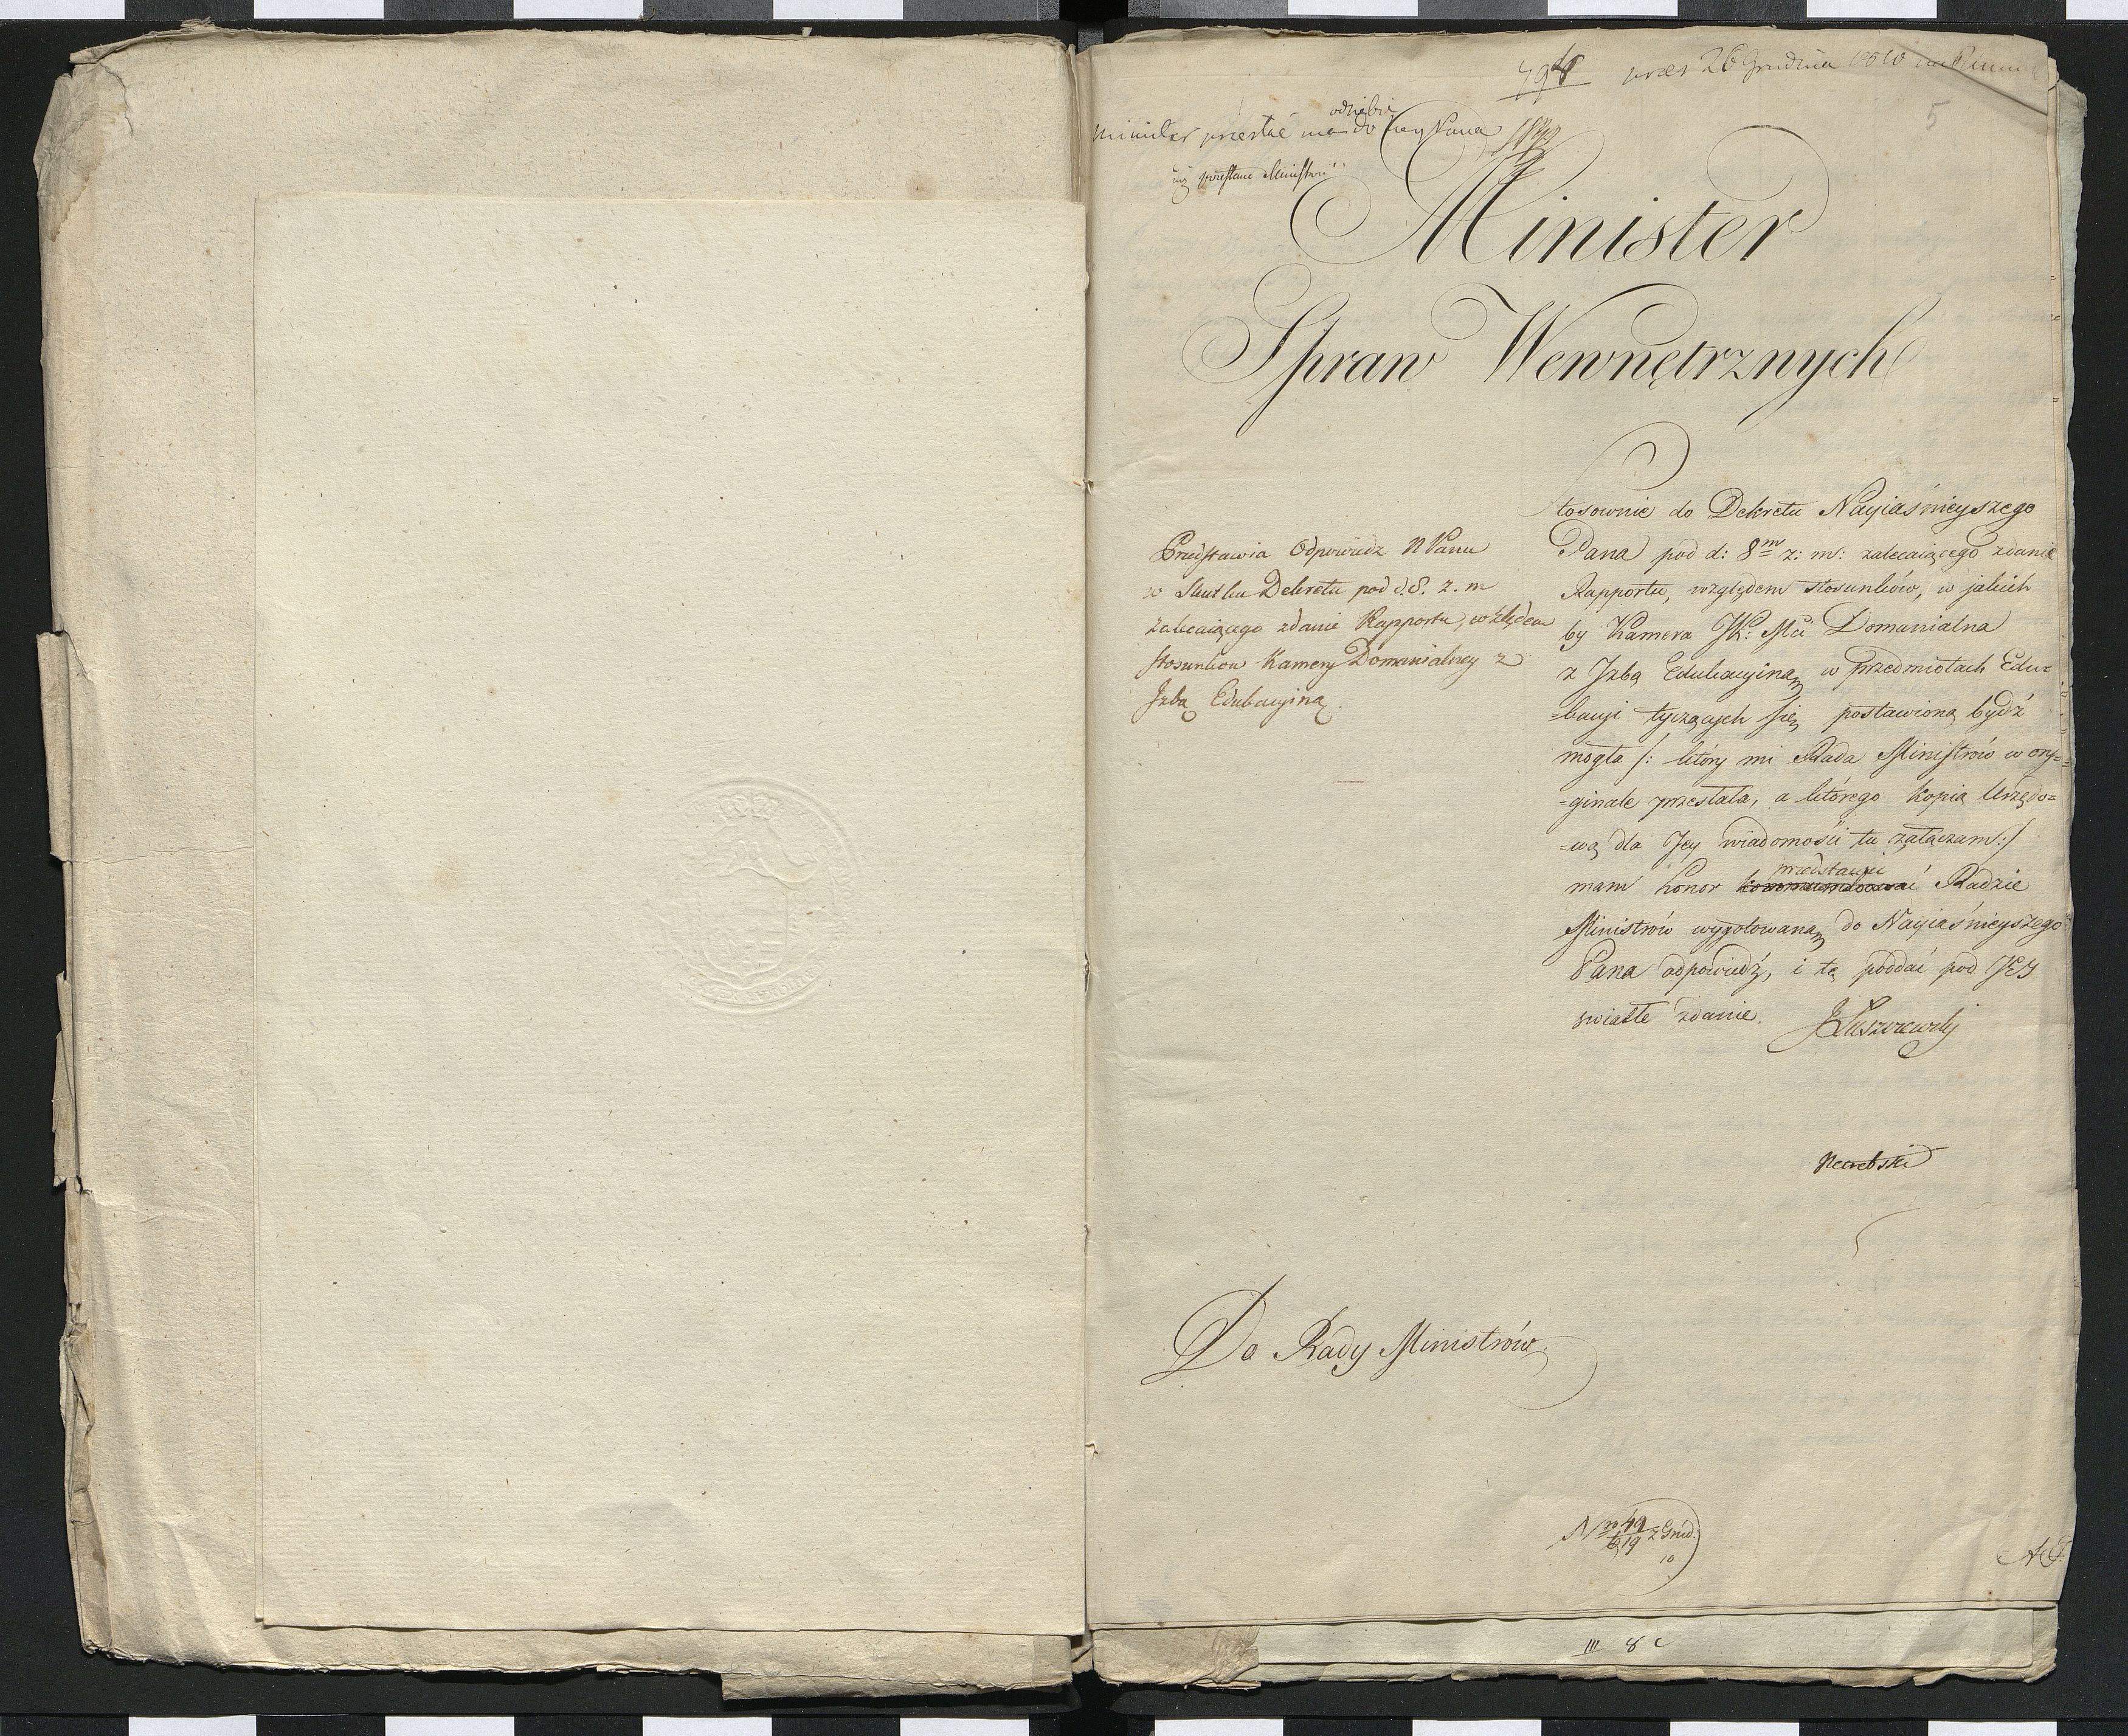 26 Grudnia
5
Minister przesłać ma do
od siebie
przesłane Ministrowi
Minister
Spraw Wewnętrznych
Przedstawia Odpowiedz N Panu
w Skutku Dekretu pod d. 8. z. m
zalecaiącego zdanie Rapportu, wzlędem
stosunkow Kamery Domanialney z
Jzbą Edukacyiną.
Stosownie do Dekretu Nayiaśnieyszego
Pana pod d: 8m z: m: zalecaiącego zdanie
Rapportu, względem stosunków, w jakich
by Kamera JK: Mci Domanialna
z Jzbą Edukacyiną, w przedmiotach Edu=
=kacyi tyczących się, postawioną bydź
mogła /: który mi Rada Ministrów w ory=
=ginale przesłała, a którego kopią Urzędo=
=wą dla Jey wiadomości tu załączam :/
przedstawić
mam honor kommunikować Radzie
Ministrów wygotowaną do Nayiaśnieyszego
Pana odpowiedź, i tą poddać pod JEJ
światłe zdanie. JŁuszczewski
Do Rady Ministrów.
III 8 c